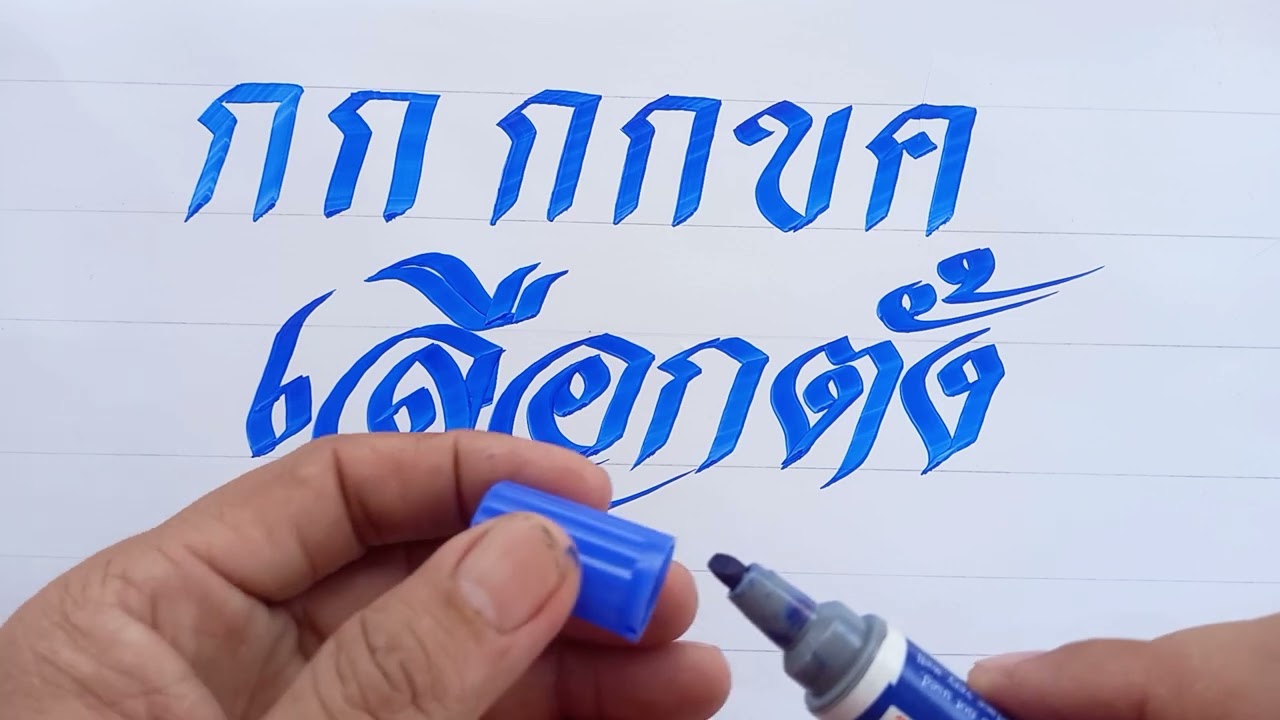 กก กกขค
เลือกตั้ง